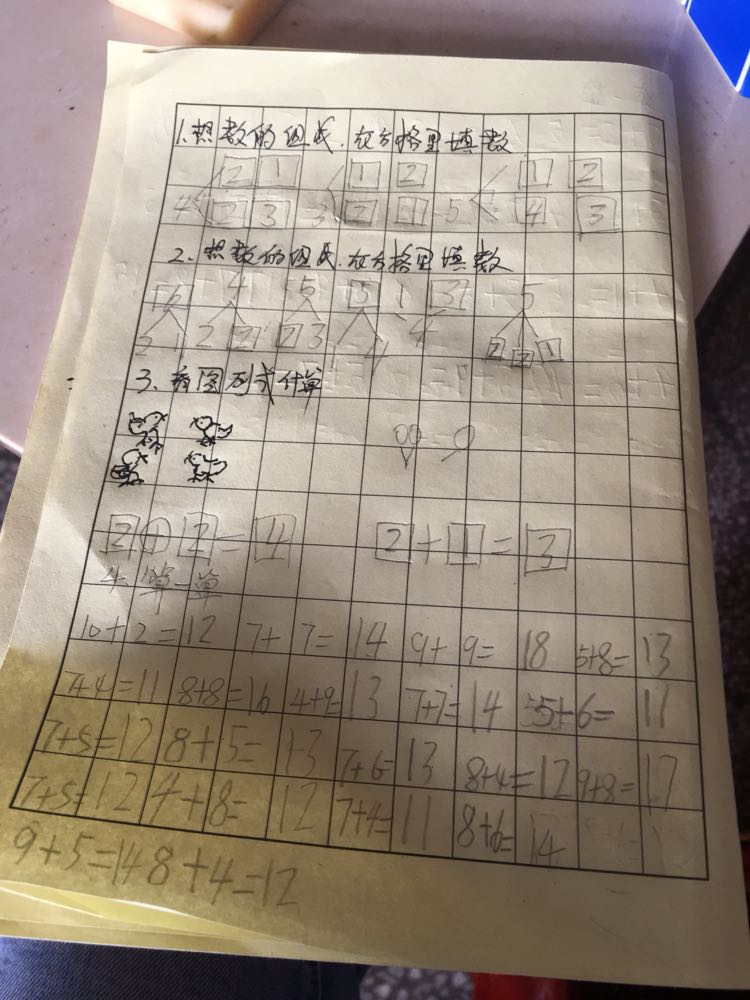 1.想数的组成.在方格里填数
2 1 1 2 1 2
4 2 3 3 2 1 5 4 3
2.想数的组成.在方格里填数
4 5 5 1 3 5
2 1 2 2 2 3 4 4 2 2 1
3.看图列式计算
2+2=4 2+1=3
4.算一算
10+2=12 7+7=14 9+9=18 5+8=13
7+4=11 8+8=16 4+9=13 7+7=14 5+6=11
7+5=12 8+5=13 7+6=13 8+4=12 9+8=17
7+5=12 4+8=12 7+4=11 8+6=14
9+5=14 8+4=12